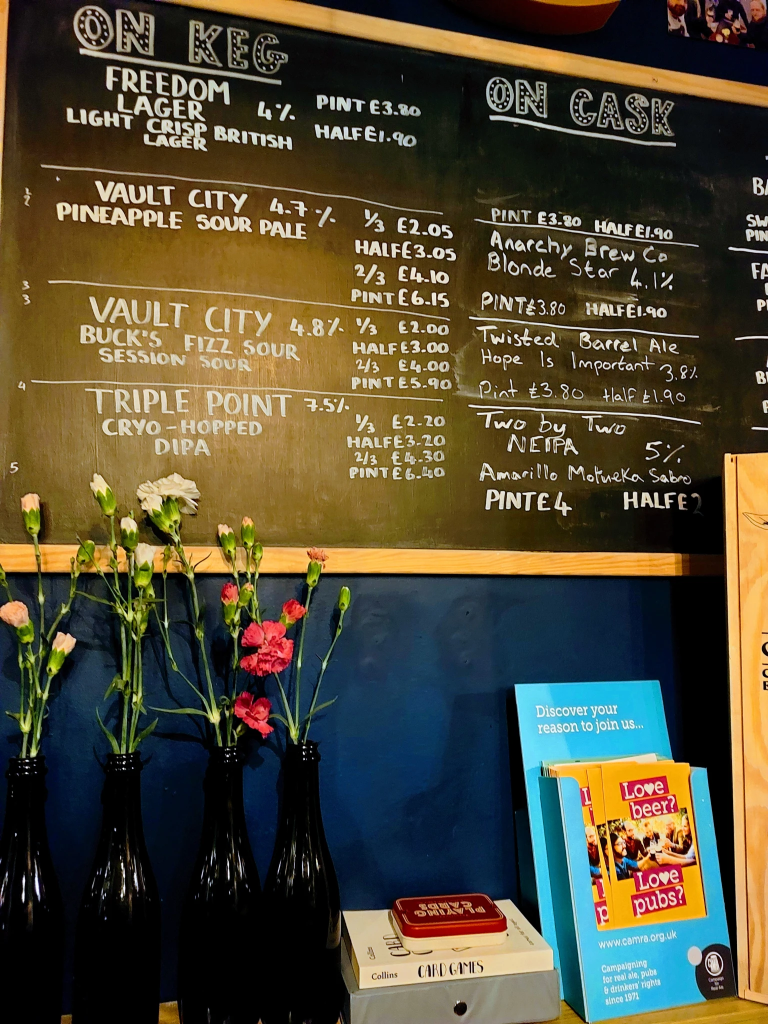 ON KEG
FREEDOM
LAGER 4% PINT £3.80
LIGHT CRISP BRITISH HALF £1.90
LAGER
1
2
VAULT CITY 4.7% 1/3 £2.05
PINEAPPLE SOUR PALE
HALF £3.05
2/3 £4.10
PINT £6.15
3
3
VAULT CITY 4.8% 1/3 £2.00
BUCK'S FIZZ SOUR HALF £3.00
SESSION SOUR 2/3 £4.00
PINT £5.90
4
TRIPLE POINT 7.5%
CRYO-HOPPED 1/3 £2.20
DIPA HALF £3.20
2/3 £4.30
PINT £6.40
5
ON CASK
PINT £3.80 HALF £1.90
Anarchy Brew Co
Blonde Star 4.1%
PINT £3.80 HALF £1.90
Twisted Barrel Ale
Hope Is Important 3.8%
Pint £3.80 Half £1.90
Two by Two
NEIPA 5%
Amarillo Motueka Sabro
PINT £4 HALF £2
BA
SW
PIN
FA
Discover your
reason to join us...
Love
beer?
Love
pubs?
www.camra.org.uk
Campaigning
for real ale, pubs
& drinkers' rights
since 1971
PLAYING
CARDS
Collins CARD GAMES